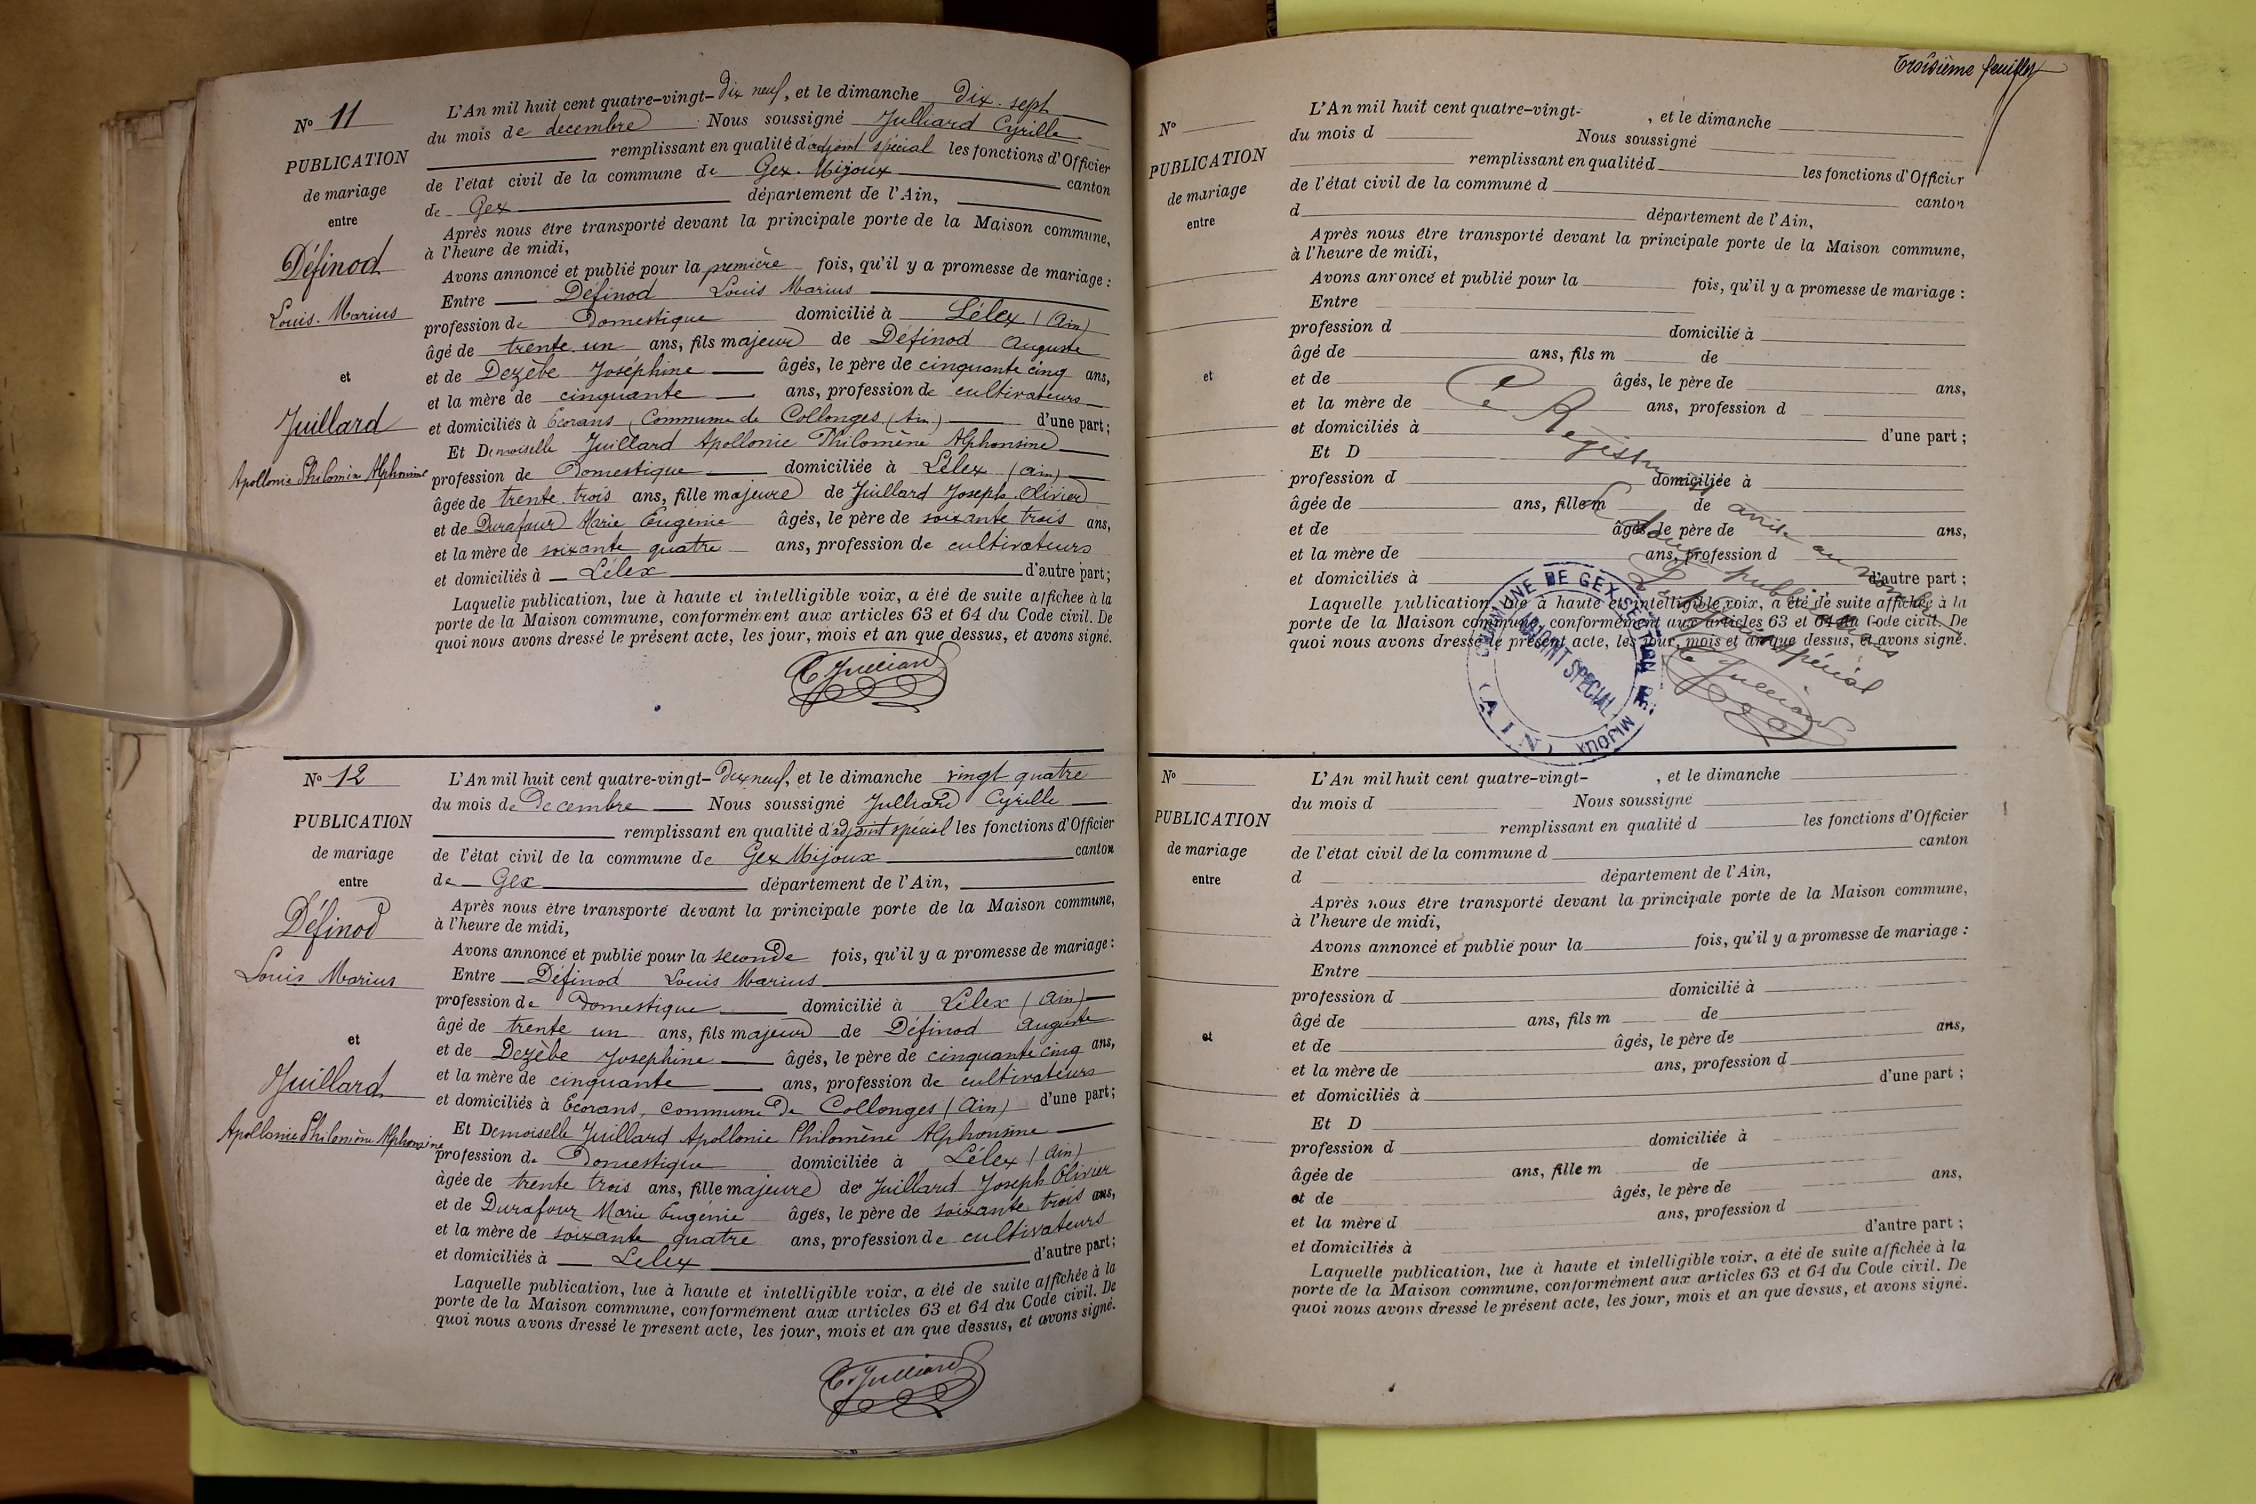 N° 11
PUBLICATION
de mariage
entre
Définod
Louis-Marius
et
Juillard
Apollonie Philomène Alphonsine
L'An mil huit cent quatre-vingt-dix neuf, et le dimanche dix-sept
du mois de decembre Nous soussigné Julliard Cyrille
remplissant en qualité d'adjoint spécial les fonctions d'Officier
de l'état civil de la commune de Gex-Mijoux canton
de Gex département de l'Ain,
Après nous être transporté devant la principale porte de la Maison commune,
à l'heure de midi,
Avons annoncé et publié pour la première fois, qu'il y a promesse de mariage :
Entre Définod Louis Marius
profession de Domestique domicilié à Lélex (Ain)
âgé de trente un ans, fils majeur de Définod Auguste
et de Dezèbe Joséphine âgés, le père de cinquante cinq ans,
et la mère de cinquante ans, profession de cultivateurs
et domiciliés à Ecorans (Commune de Collonges (Ain) d'une part ;
Et Demoiselle Juillard Apollonie Philomène Alphonsine
profession de Domestique domiciliée à Lélex (Ain)
âgée de trente trois ans, fille majeure de Juillard Joseph Olivier
et de Durafour Marie Eugénie âgés, le père de soixante trois ans,
et la mère de soixante quatre ans, profession de cultivateurs
et domiciliés à Lélex d'autre part ;
Laquelle publication, lue à haute et intelligible voix, a été de suite affichée à la
porte de la Maison commune, conformément aux articles 63 et 64 du Code civil. De
quoi nous avons dressé le présent acte, les jour, mois et an que dessus, et avons signé.
C Julliard
N° 12
PUBLICATION
de mariage
entre
Définod
Louis Marius
et
Juillard
Apollonie Philomène Alphonsine
L'An mil huit cent quatre-vingt-Dix neuf, et le dimanche vingt quatre
du mois de Decembre Nous soussigné Julliard Cyrille
remplissant en qualité d'adjoint spécial les fonctions d'Officier
de l'état civil de la commune de Gex Mijoux canton
de Gex département de l'Ain,
Après nous être transporté devant la principale porte de la Maison commune,
à l'heure de midi,
Avons annoncé et publié pour la seconde fois, qu'il y a promesse de mariage :
Entre Définod Louis Marius
profession de Domestique domicilié à Lélex (Ain)
âgé de trente un ans, fils majeur de Définod Auguste
et de Dezèbe Josephine âgés, le père de cinquante cinq ans,
et la mère de cinquante ans, profession de cultivateurs
et domiciliés à Ecorans, commune de Collonges (Ain) d'une part ;
Et Demoiselle Juillard Apollonie Philomène Alphonsine
profession de Domestique domiciliée à Lélex (Ain)
âgée de trente trois ans, fille majeure de Juillard Joseph Olivier
et de Durafour Marie Eugénie âgés, le père de soixante trois ans,
et la mère de soixante quatre ans, profession de cultivateurs
et domiciliés à Lelex d'autre part ;
Laquelle publication, lue à haute et intelligible voix, a été de suite affichée à la
porte de la Maison commune, conformément aux articles 63 et 64 du Code civil. De
quoi nous avons dressé le présent acte, les jour, mois et an que dessus, et avons signé.
C. Julliard
Troisième feuillet
N°
PUBLICATION
de mariage
entre
et
L'An mil huit cent quatre-vingt- , et le dimanche
du mois d Nous soussigné
remplissant en qualité d les fonctions d'Officier
de l'état civil de la commune d canton
d département de l'Ain,
Après nous être transporté devant la principale porte de la Maison commune,
à l'heure de midi,
Avons annoncé et publié pour la fois, qu'il y a promesse de mariage :
Entre
profession d domicilié à
âgé de ans, fils m de
et de âgés, le père de ans,
et la mère de ans, profession d
et domiciliés à d'une part ;
Et D
profession d domiciliée à
âgée de ans, fille m de
et de âgés, le père de ans,
et la mère de ans, profession d
et domiciliés à d'autre part ;
Laquelle publication, lue à haute et intelligible voix, a été de suite affichée à la
porte de la Maison commune, conformément aux articles 63 et 64 du Code civil. De
quoi nous avons dressé le présent acte, les jour, mois et an que dessus, et avons signé.
Ce Registre
arrêté au nombre
de publications
L'adjoint spécial
C Julliard
COMMUNE DE GEX SECTION DE MIJOUX
ADJOINT SPECIAL
(AIN)
N°
PUBLICATION
de mariage
entre
et
L'An mil huit cent quatre-vingt- , et le dimanche
du mois d Nous soussigné
remplissant en qualité d les fonctions d'Officier
de l'état civil de la commune d canton
d département de l'Ain,
Après nous être transporté devant la principale porte de la Maison commune,
à l'heure de midi,
Avons annoncé et publié pour la fois, qu'il y a promesse de mariage :
Entre
profession d domicilié à
âgé de ans, fils m de
et de âgés, le père de ans,
et la mère de ans, profession d
et domiciliés à d'une part ;
Et D
profession d domiciliée à
âgée de ans, fille m de
et de âgés, le père de ans,
et la mère d ans, profession d
et domiciliés à d'autre part ;
Laquelle publication, lue à haute et intelligible voix, a été de suite affichée à la
porte de la Maison commune, conformément aux articles 63 et 64 du Code civil. De
quoi nous avons dressé le présent acte, les jour, mois et an que dessus, et avons signé.